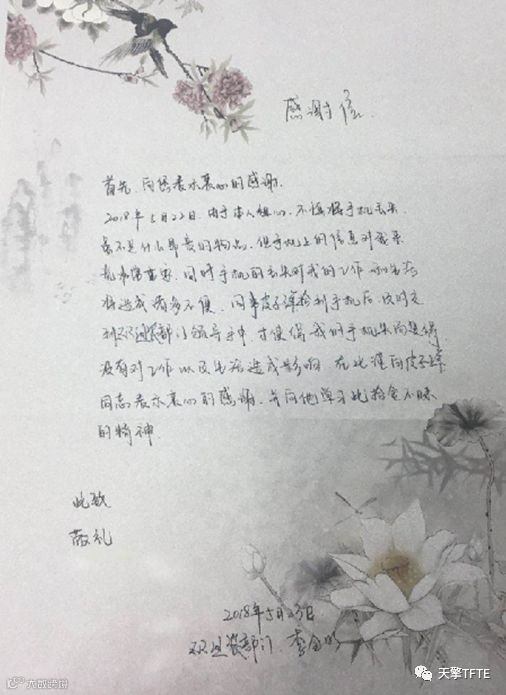 感谢信
首先,向您表示衷心的感谢。
2018年5月22日,由于本人粗心,不慎将手机丢失
虽不是什么昂贵的物品,但手机上的信息对我来
说非常重要,同时手机的丢失对我的工作和生活
将造成诸多不便,同事皮子连捡到手机后,及时交
到部门领导手中,才使得我的手机失而复得
没有对工作以及生活造成影响,在此谨向
同志表示衷心的感谢,并向他学习此拾金不昧
的精神
此致
敬礼
2018年5月23日
部门
大数跨境
天擎TFTE